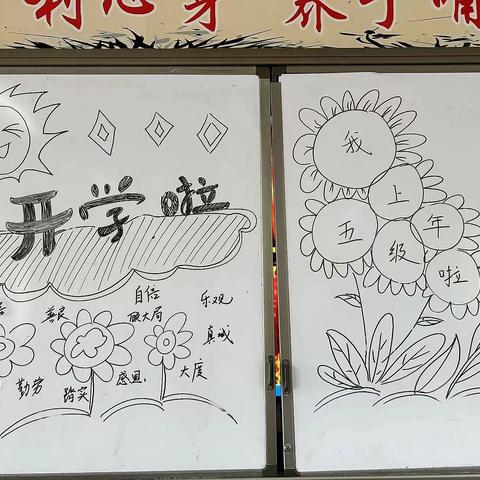 开学啦
自信
善良
顾大局
乐观
真诚
勤劳
踏实
感恩
大度
我
上
五
年
级
啦